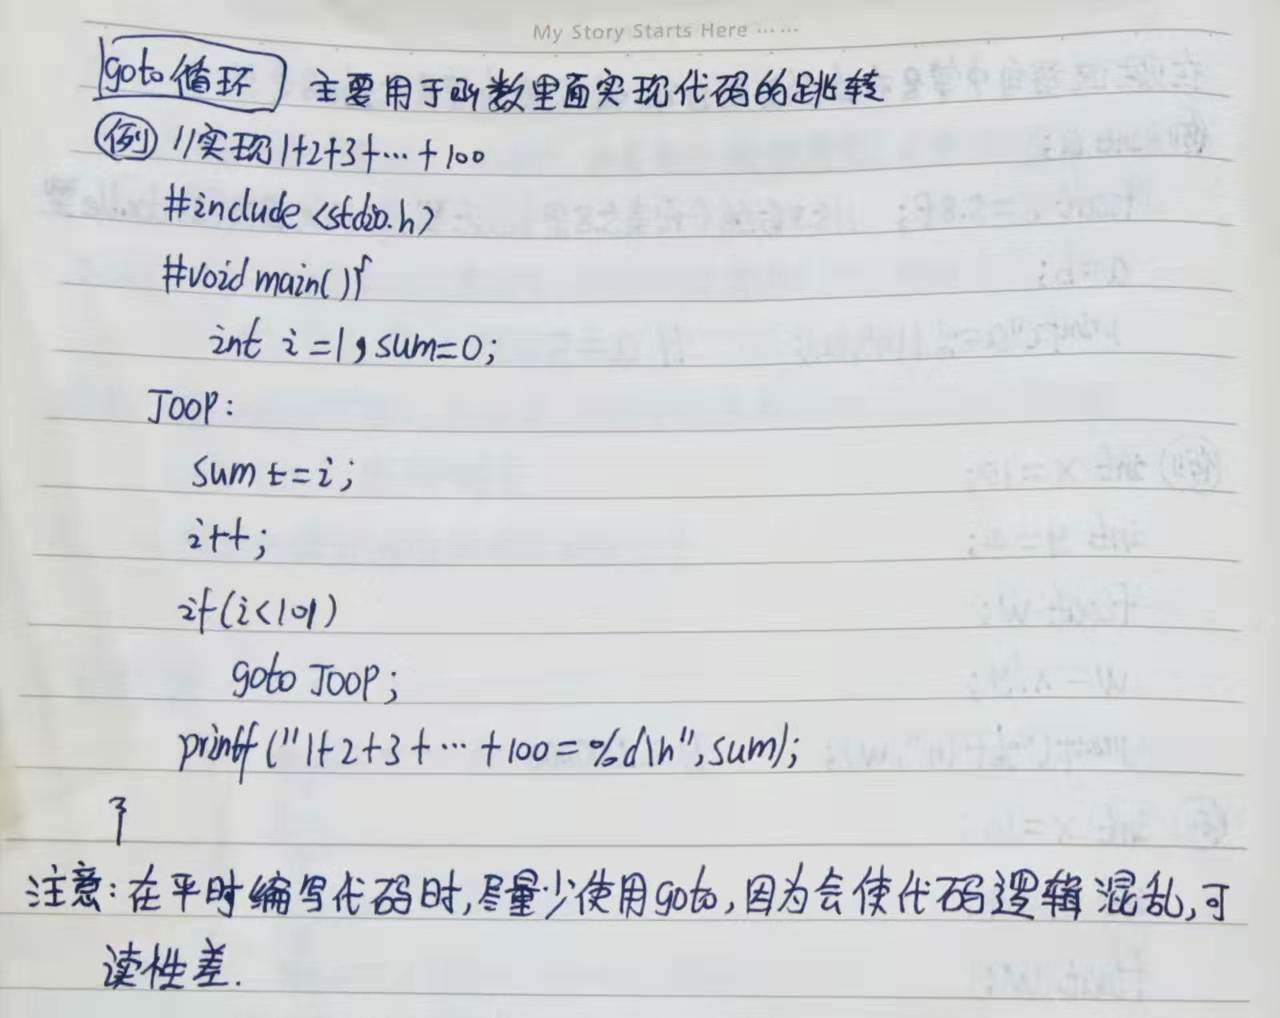 My Story Starts Here ......
goto循环 主要用于函数里面实现代码的跳转
例 //实现1+2+3+…+100
#include <stdio.h>
#void main(){
int i=1,sum=0;
JOOP:
sum+=i;
i++;
if(i<101)
goto JOOP;
printf("1+2+3+…+100=%d\n",sum);
}
注意:在平时编写代码时,尽量少使用goto,因为会使代码逻辑混乱,可
读性差.